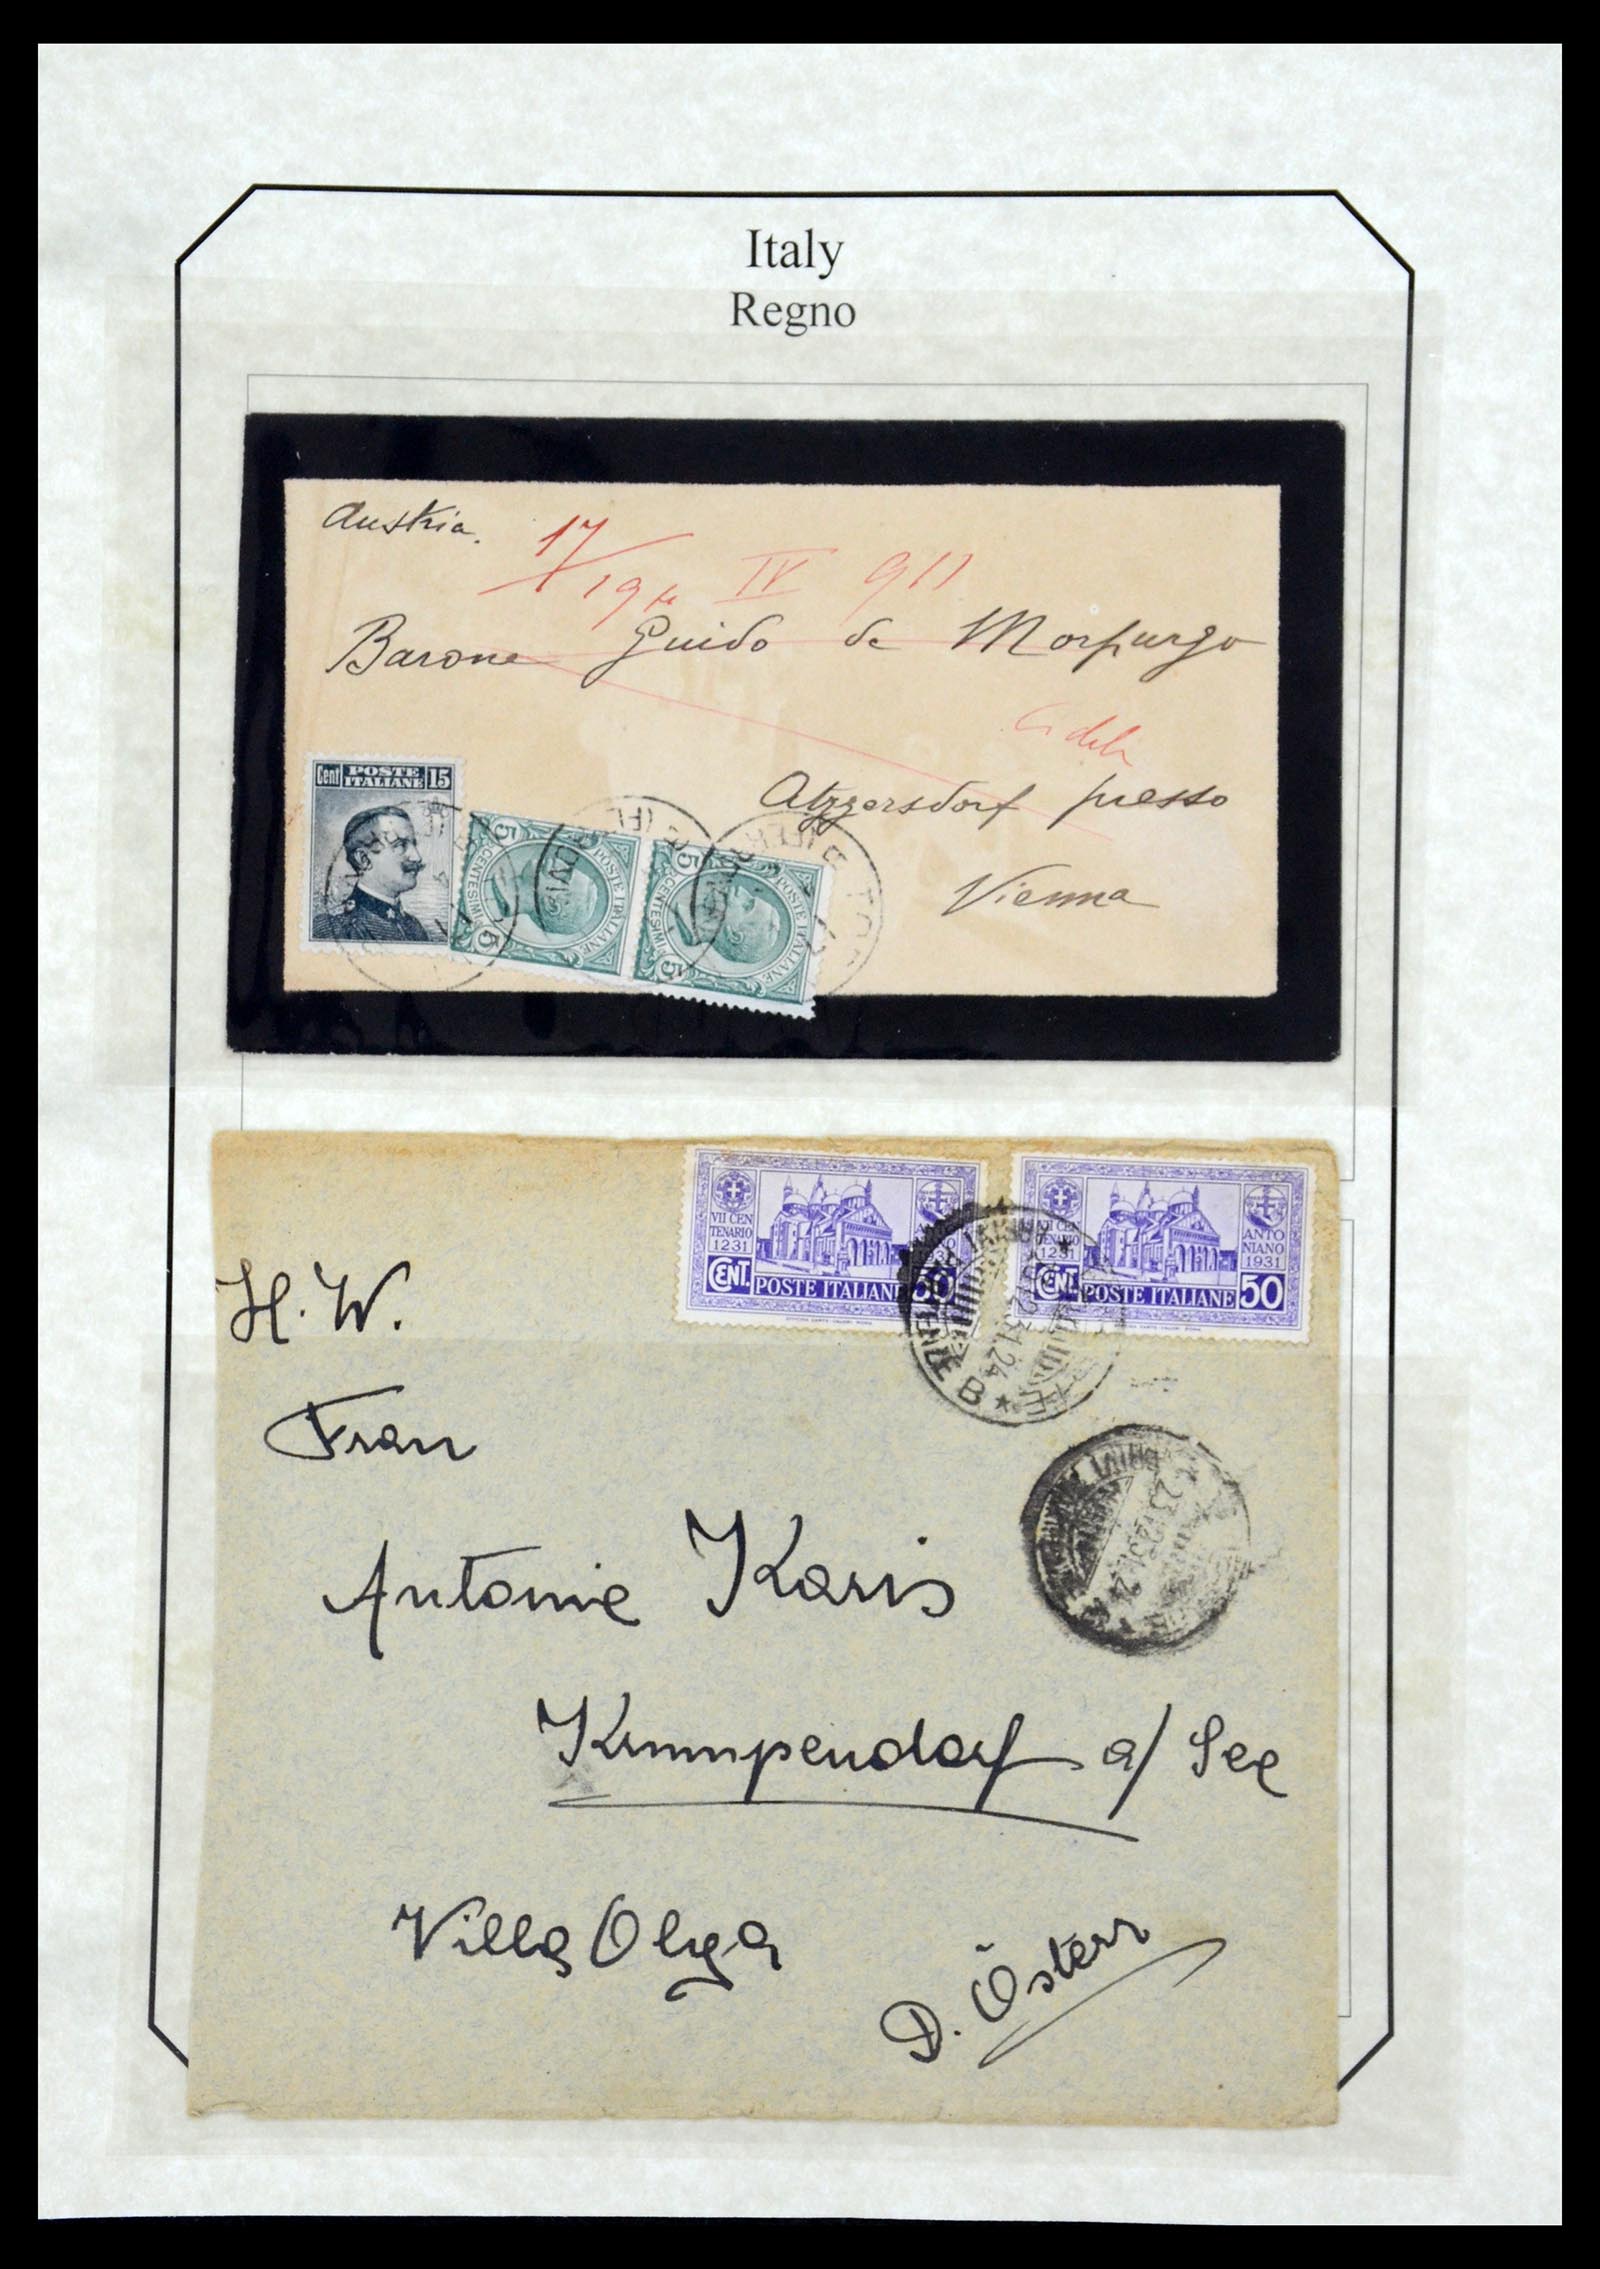 Italy
Regno
Austria.
17/19 IV 911
Barone Guido de Morpurgo
Atzgersdorf presso
Vienna
Cent POSTE ITALIANE 15
5 POSTE ITALIANE 5 CENTESIMI
5 POSTE ITALIANE 5 CENTESIMI
VII CEN
TENARIO
1231
1931
CENT. POSTE ITALIANE 50
VII CEN
TENARIO
1231
ANTO
NIANO
1931
CENT. POSTE ITALIANE 50
H. W.
Frau
Antonie Karis
Krumpendorf a/ See
Villa Olga
D. Österr